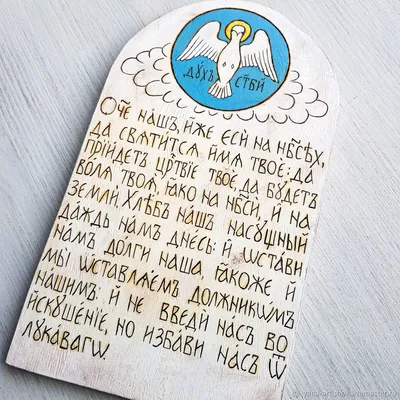 дꙋ́хъ ст҃ы́й
Ѻ҆́ч҃е на́шъ, и҆́же є҆сѝ на нб҃се́хъ,
да свѧти́тсѧ и҆́мѧ твоѐ: да
прїи́детъ црⷭ҇твїе твоѐ, да бꙋ́детъ
во́лѧ твоѧ̀, ꙗ҆́кѡ на нб҃сѝ, и҆ на
землѝ, хлѣ́бъ на́шъ насꙋ́щный
да́ждь на́мъ дне́сь: и҆ ѡ҆ста́ви
на́мъ до́лги на́ша, ꙗ҆́коже, и҆
мы̀ ѡ҆ставлѧ́емъ должникѡ́мъ
на́шимъ: и҆ не введѝ на́съ во
и҆скꙋше́нїе, но и҆зба́ви на́съ ѿ
лꙋка́вагѡ